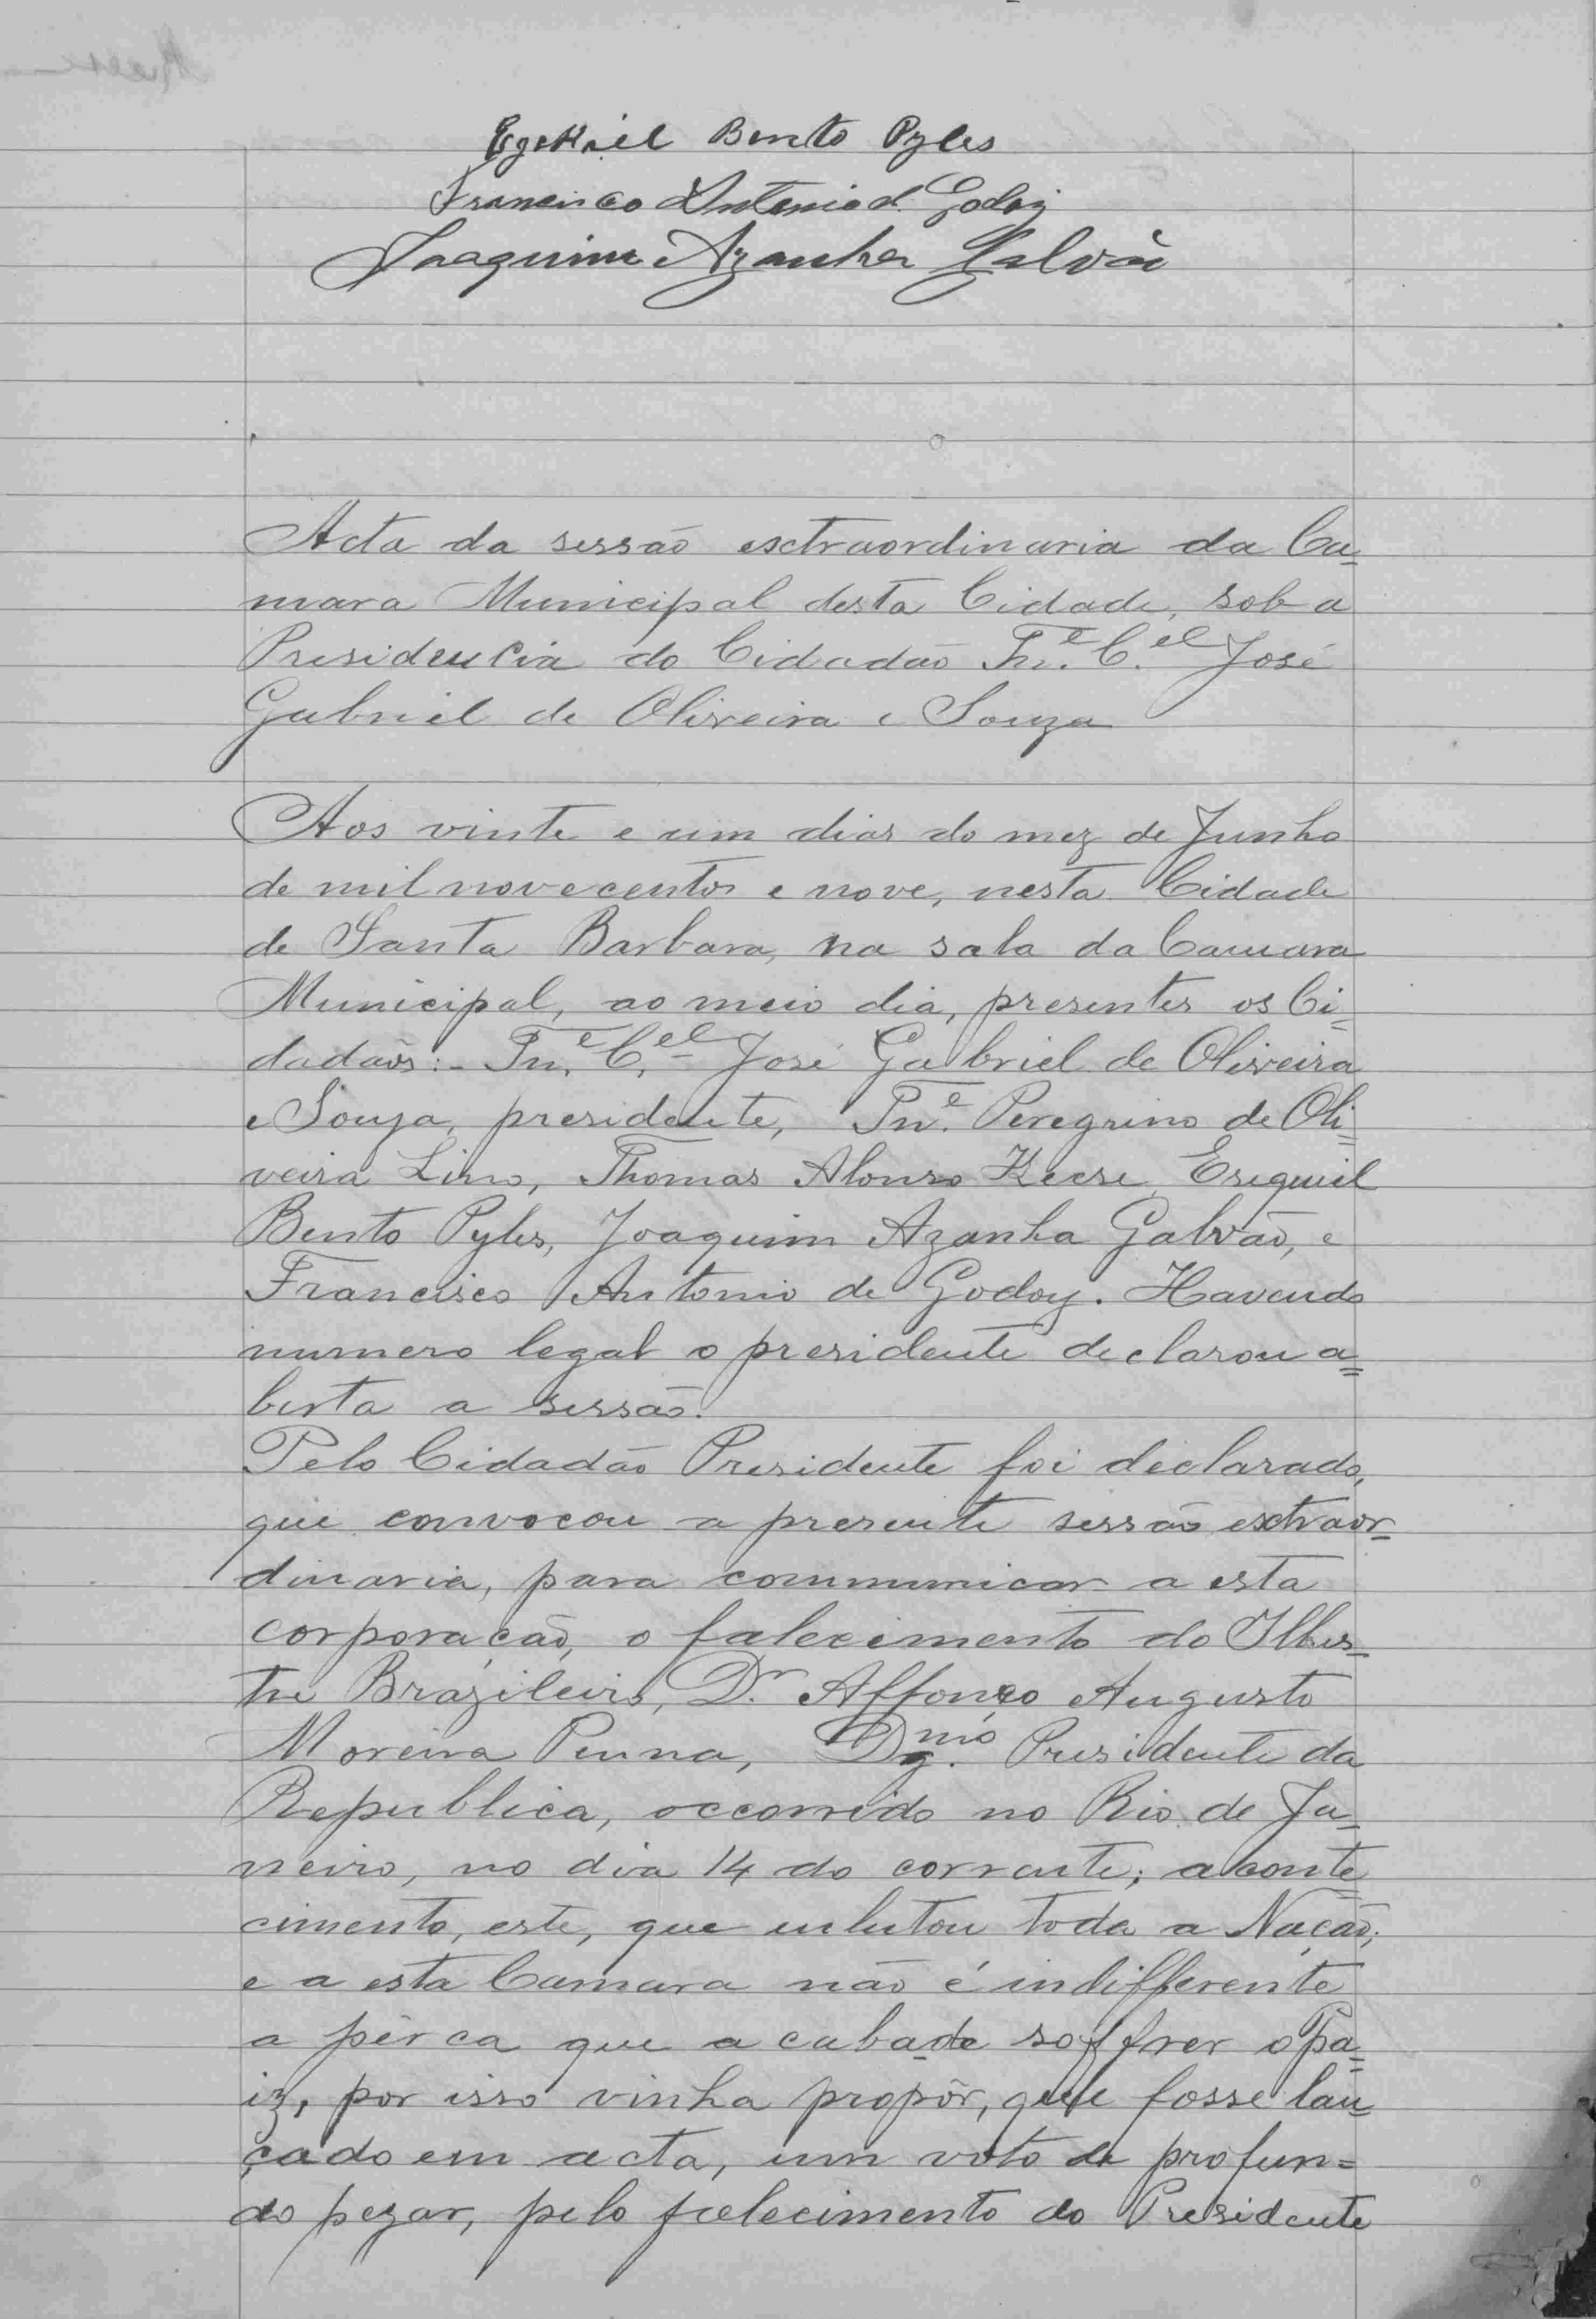 Ezekiel Bento Pyles
Francisco Antonio d. Godoy
Joaquim Azanha Galvão
Acta da sessão extraordinaria da Ca-
mara Municipal desta Cidade, sob a
Presidencia do Cidadão Tn.e C.el José
Gabriel de Oliveira e Souza
Aos vinte e um dias do mez de Junho
de mil novecentos e nove, nesta Cidade
de Santa Barbara, na sala da Camara
Municipal, ao meio dia, presentes os Ci=
dadãos:- Tn.e C.el José Gabriel de Oliveira
e Souza, presidente, Tn.e Peregrino de Oli=
veira Lino, Thomas Alonso Keese, Esequiel
Bento Pyles, Joaquim Azanha Galvão, e
Francisco Antonio de Godoy. Havendo
numero legal o presidente declarou a=
berta a sessão.
Pelo Cidadão Presidente foi declarado,
que convocou a presente sessão extraor=
dinaria, para communicar a esta
corporação, o falecimento do Illus=
tre Brazileiro, Dr. Affonço Augusto
Moreira Penna, Dg.mo Presidente da
Republica, occorrido no Rio de Ja-
neiro, no dia 14 do corrente; aconte=
cimento, este, que enlutou toda a Nação;
e a esta Camara não é indifferente
a pérca que acaba de soffrer o Pa=
iz, por isso vinha propôr, que fosse lan=
çado em acta, um voto de profun=
do pezar, pelo falecimento do Presidente